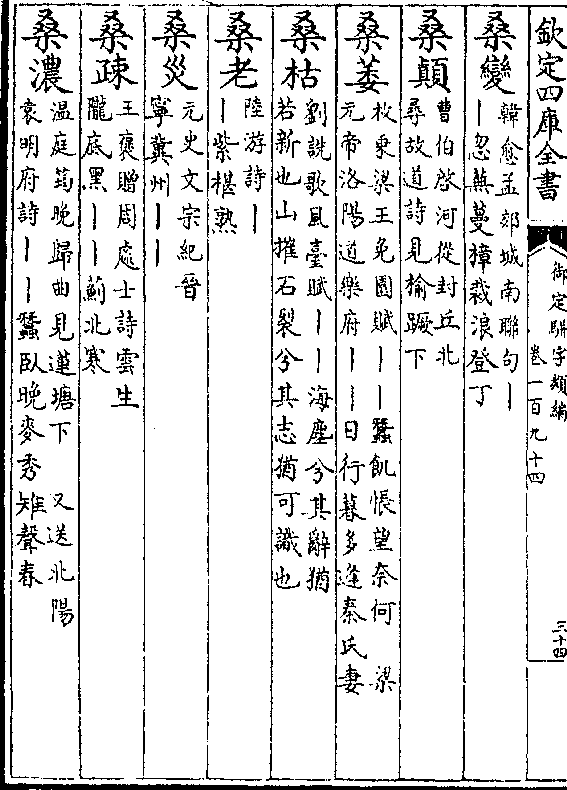 欽定四庫全書
御定駢字類編
卷一百九十四
三十四
桑變
韓愈孟郊城南聯句丨
丨忽蕪蔓樟裁浪登丁
桑顛
曹伯啓河從封丘北
尋故道詩見榆蹶下
桑萎
枚乗梁王兔園賦丨丨蠶飢悵望奈何 梁
元帝洛陽道樂府丨丨日行暮多逢秦氏妻
桑枯
劉詵歌風臺賦丨丨海塵兮其辭猶
若新也山摧石裂兮其志猶可識也
桑老
陸游詩丨
丨紫椹熟
桑災
元史文宗紀晉
寧冀州丨丨
桑疎
王褒贈周處士詩雲生
隴底黒丨丨薊北寒
桑濃
温庭筠晚歸曲見蓮塘下 又送北陽
袁明府詩丨丨蠶臥晚麥秀雉聲春